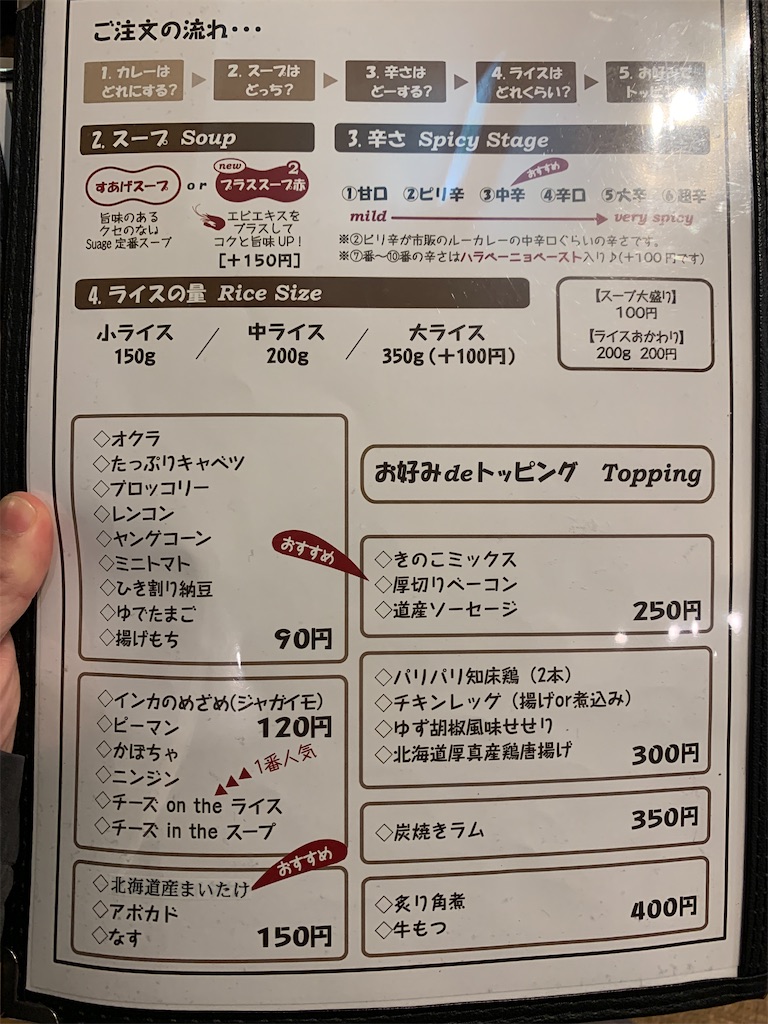 ご注文の流れ･･･
1. カレーは
どれにする?
2. スープは
どっち?
3. 辛さは
どーする?
4. ライスは
どれくらい?
5. お好みで
2. スープ Soup
すあげスープ
or
new
プラススープ赤
2
旨味のある
クセのない
Suage 定番スープ
エビエキスを
プラスして
コクと旨味UP!
[+150円]
3. 辛さ Spicy Stage
おすすめ
①甘口 ②ピリ辛 ③中辛 ④辛口 ⑤大辛 ⑥超辛
mild
very spicy
※②ピリ辛が市販のルーカレーの中辛口ぐらいの辛さです。
※⑦番〜⑩番の辛さはハラペーニョペースト入り♪(+100円です)
4. ライスの量 Rice Size
小ライス
150g
中ライス
200g
大ライス
350g(+100円)
【スープ大盛り】
100円
【ライスおかわり】
200g 200円
◇オクラ
◇たっぷりキャベツ
◇ブロッコリー
◇レンコン
◇ヤングコーン
◇ミニトマト
◇ひき割り納豆
◇ゆでたまご
◇揚げもち
90円
◇インカのめざめ(ジャガイモ)
◇ピーマン
120円
◇かぼちゃ
◇ニンジン
1番人気
◇チーズ on the ライス
◇チーズ in the スープ
おすすめ
◇北海道産まいたけ
◇アボカド
◇なす
150円
お好みdeトッピング Topping
おすすめ
◇きのこミックス
◇厚切りベーコン
◇道産ソーセージ
250円
◇パリパリ知床鶏(2本)
◇チキンレッグ(揚げor煮込み)
◇ゆず胡椒風味せせり
◇北海道厚真産鶏唐揚げ
300円
◇炭焼きラム
350円
◇炙り角煮
◇牛もつ
400円